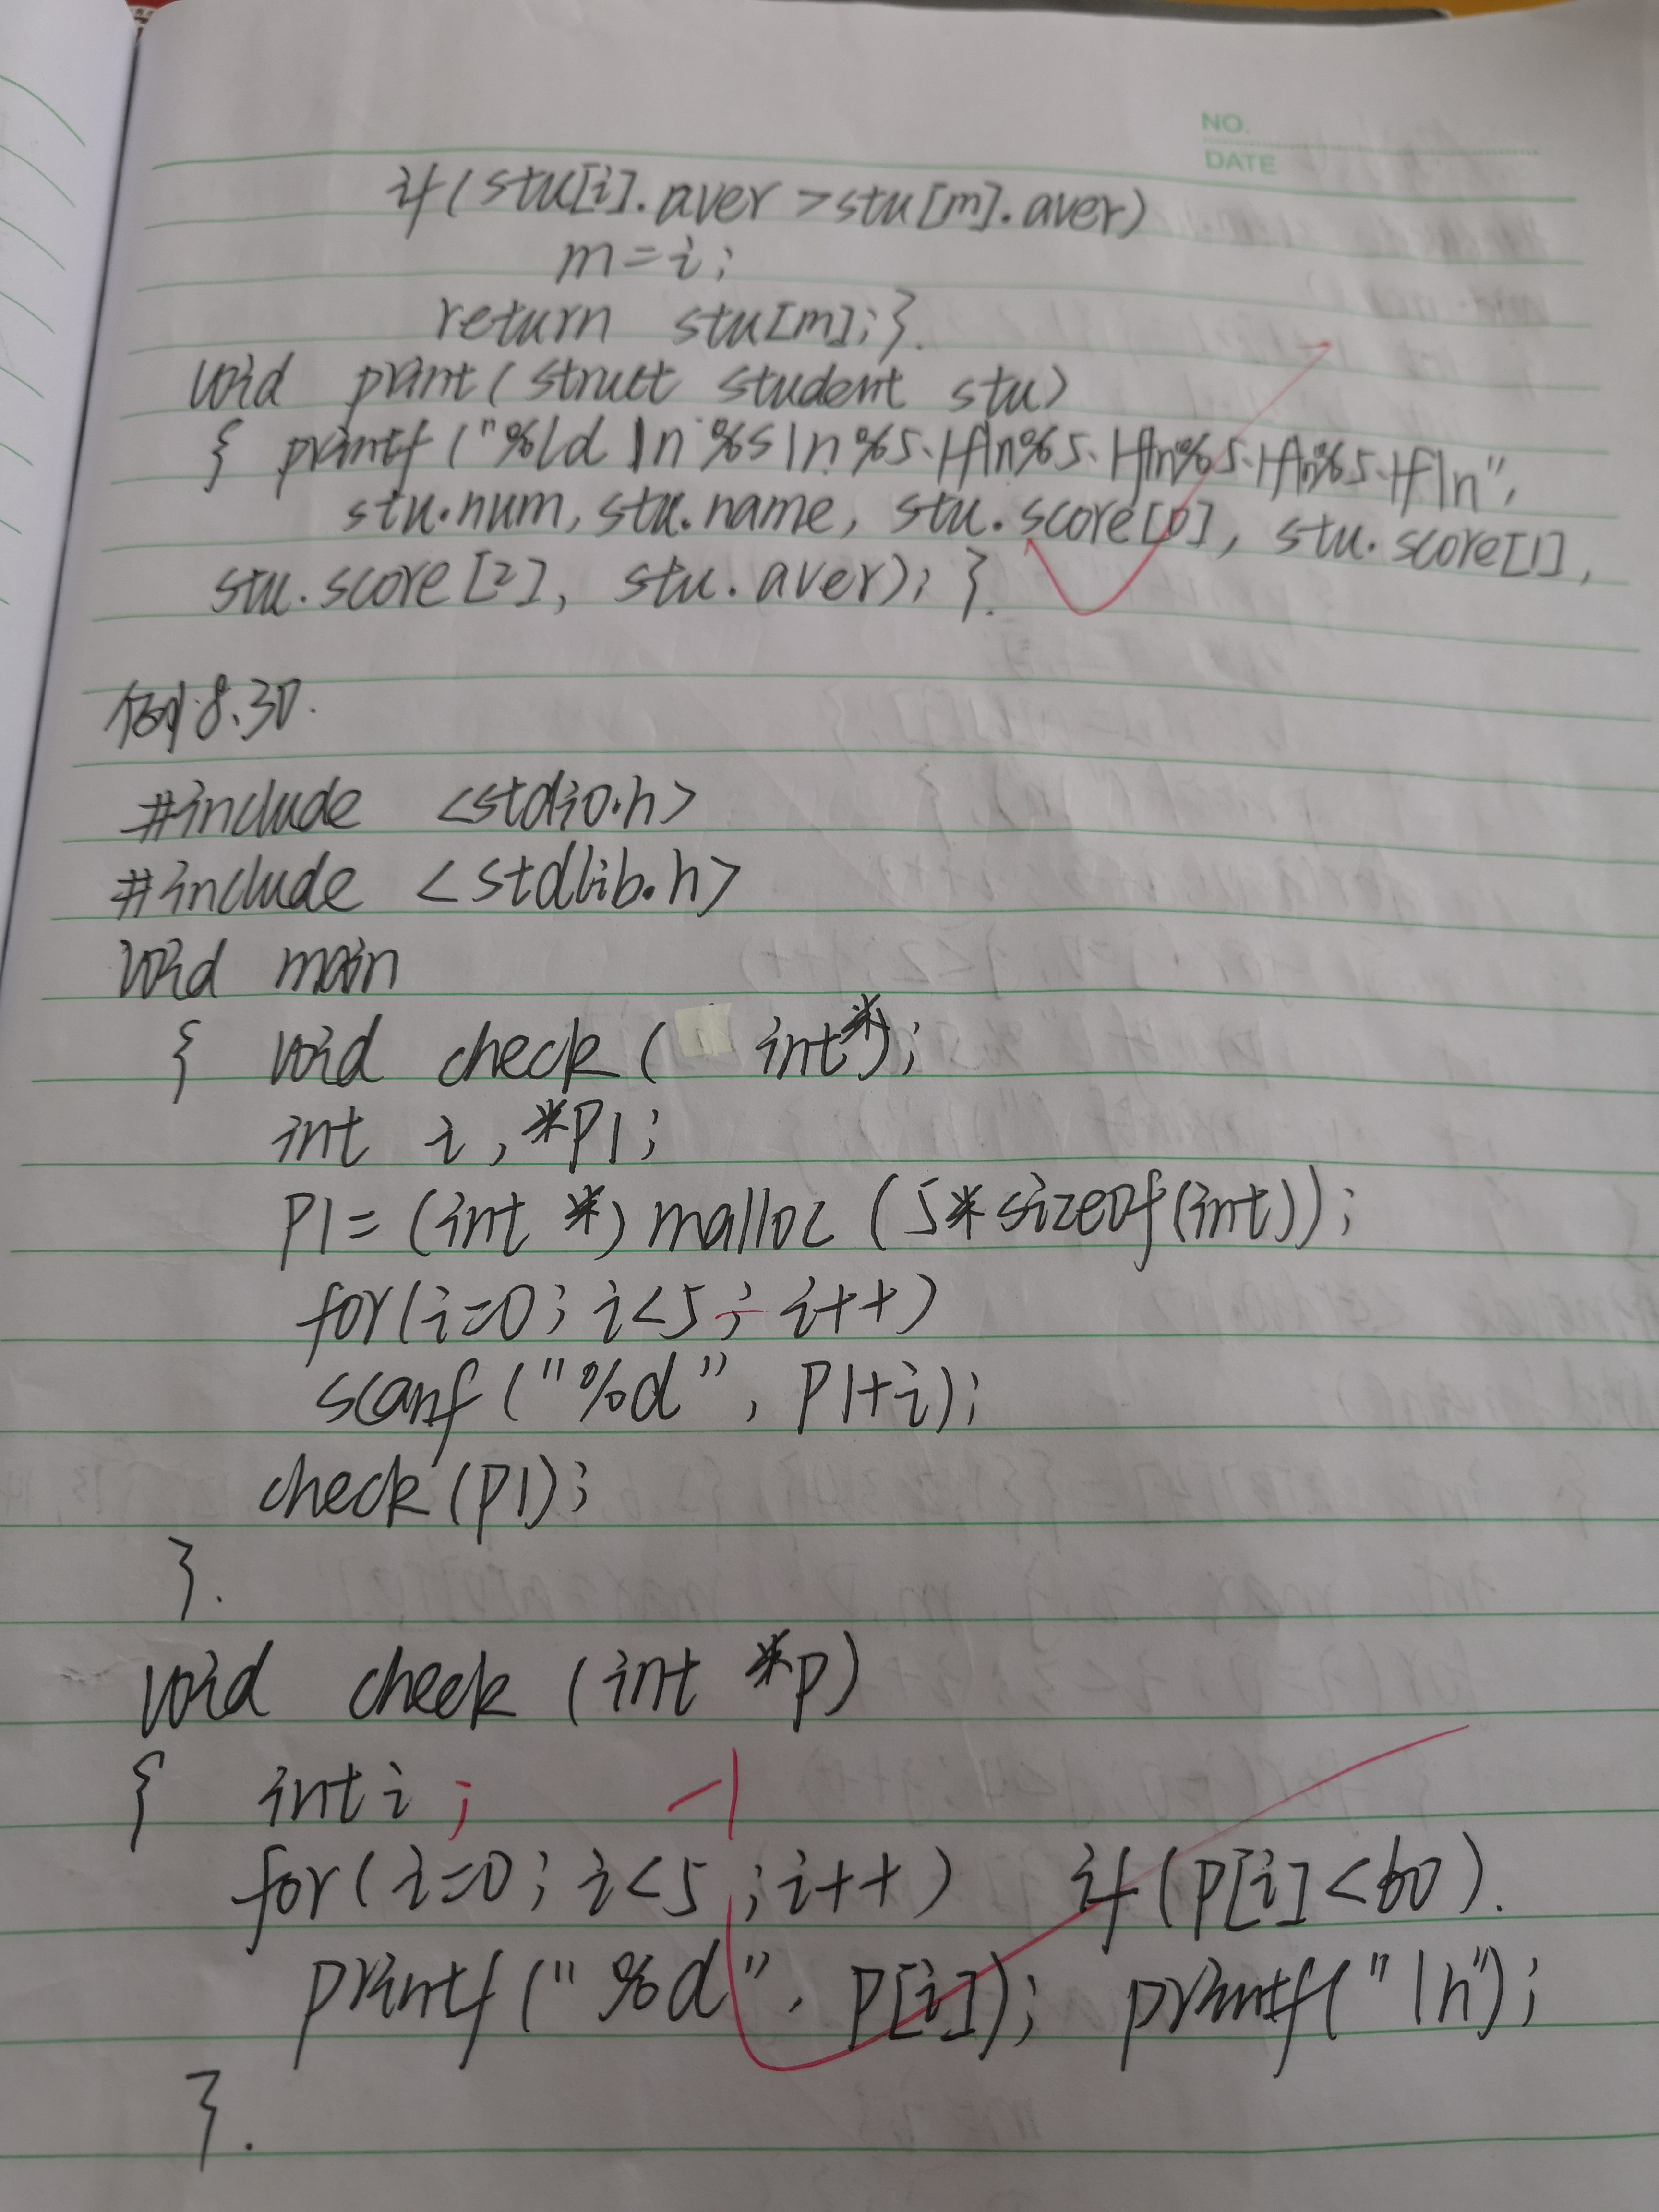 NO.
DATE
if(stu[i].aver >stu[m].aver)
m=i;
return stu[m];}.
void print(struct student stu)
{ printf("%ld \n %s\n %5.1f\n%5.1f\n%5.1f\n%5.1f\n",
stu.num, stu.name, stu.score[0], stu.score[1],
stu.score[2], stu.aver); }.
例8.30.
#include <stdio.h>
#include <stdlib.h>
void main
{ void check( int*);
int i, *P1;
P1=(int *) malloc (5*sizeof(int));
for(i=0; i<5; i++)
scanf("%d", P1+i);
check(P1);
}.
void check (int *p)
{ int i; -1
for(i=0; i<5; i++) if(p[i]<60).
printf("%d", p[i]); printf("\n");
}.